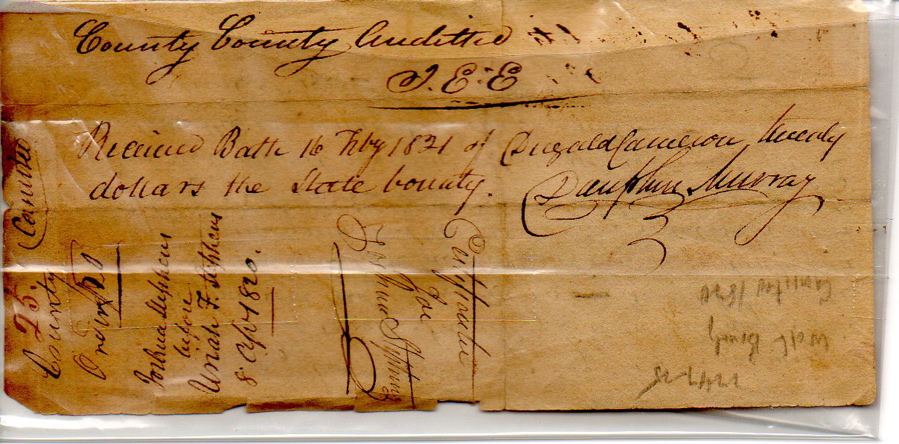 County County Auditted
I. E. E
Received Bath 16 Feby 1821 of Dugald Cameron twenty
dollars the State bounty.
Dauphin Murray
Canisteo
25.
County
Order $20
Joshua Stephens
before
Uriah F. Stephens
8 Apl 1820.
Certificate
for
Joshua Stephens
Canisteo 1820
Wolf Bounty